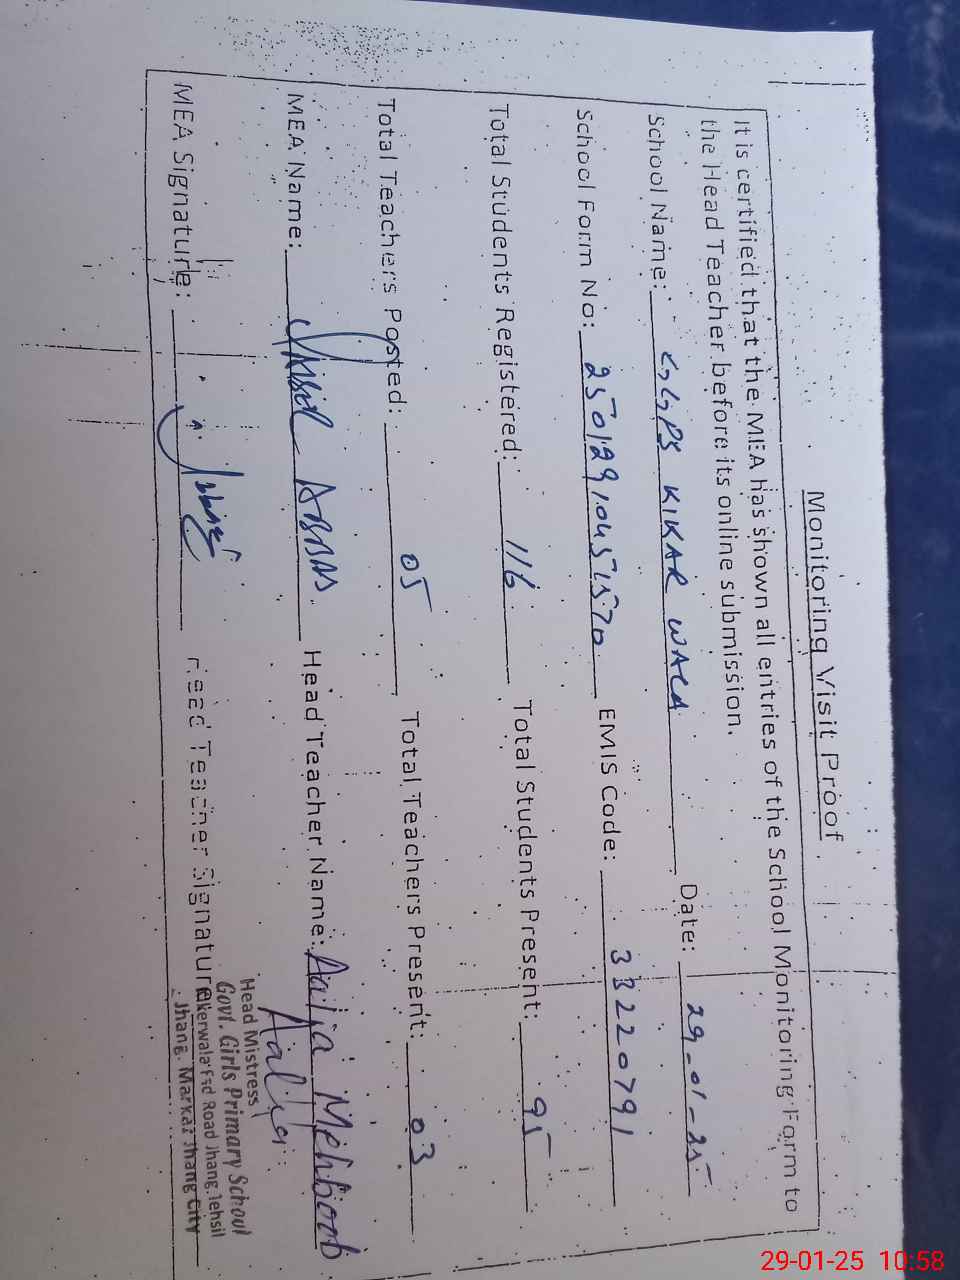 Monitoring Visit Proof
It is certified that the MEA has shown all entries of the School Monitoring Form to
the Head Teacher before its online submission.
School Name: GGPS KIKAR WALA Date: 29-01-25
School Form No: EMIS Code: 33220791
Total Students Registered: 116 Total Students Present: 95
Total Teachers Posted: 05 Total Teachers Present: 03
MEA Name: ABBAS Head Teacher Name: Aalia Mehboob
MEA Signature: Head Teacher Signature
Aalia
Head Mistress
Govt. Girls Primary School
Kikerwala Fsd Road Jhang Tehsil
Jhang. Markaz Jhang City
29-01-25 10:58